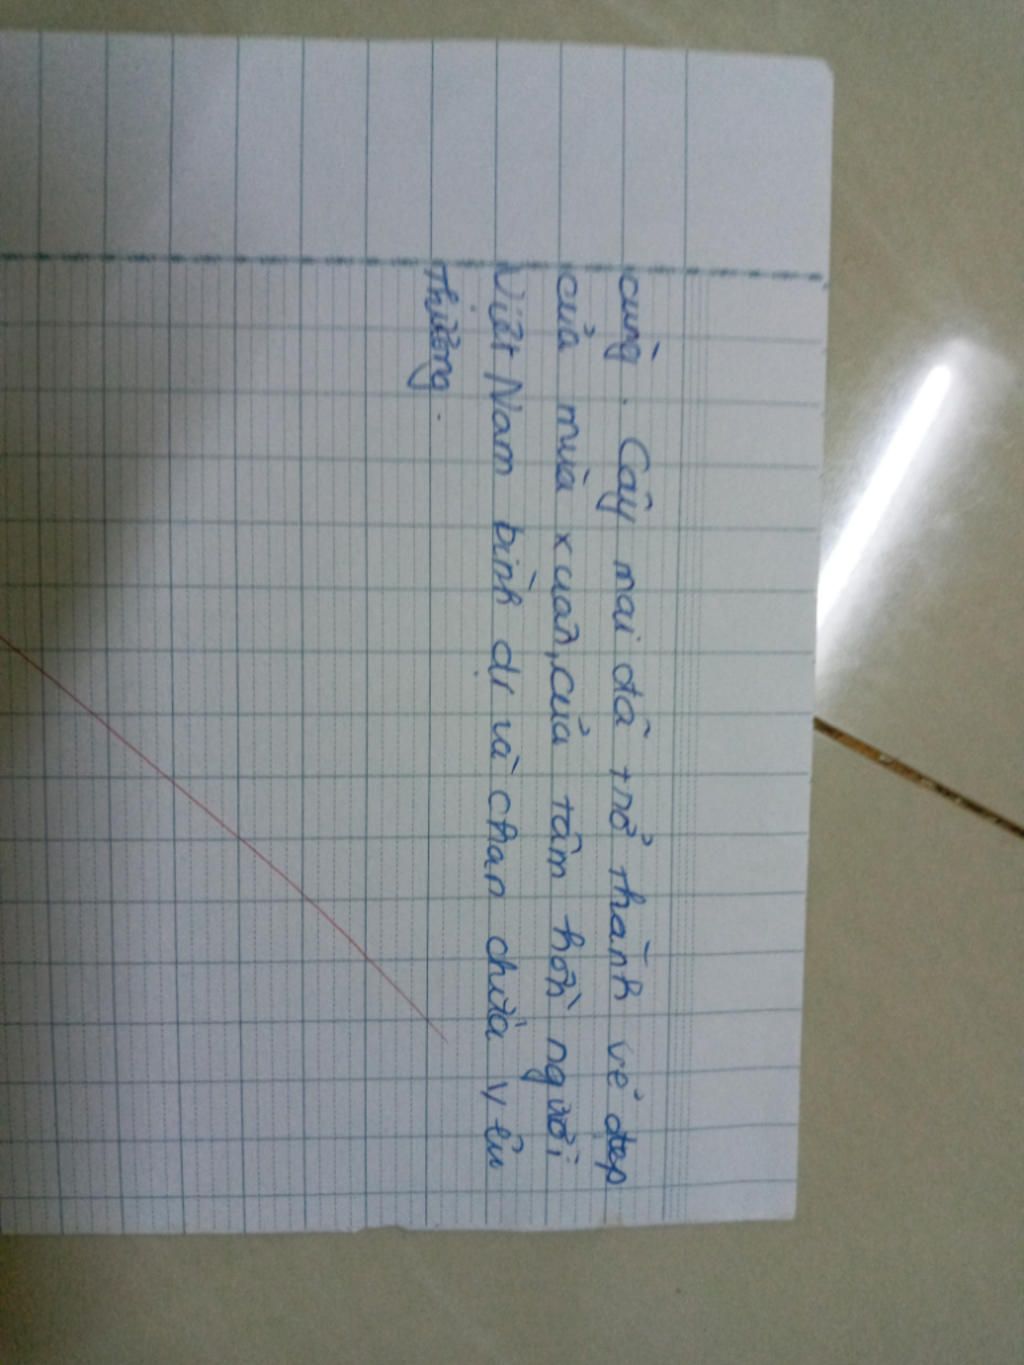 cùng. Cây mai đã trổ thành vẻ đẹp
của mùa xuân, của tâm hồn người
Việt Nam bình dị và chan chứa yêu
thương.